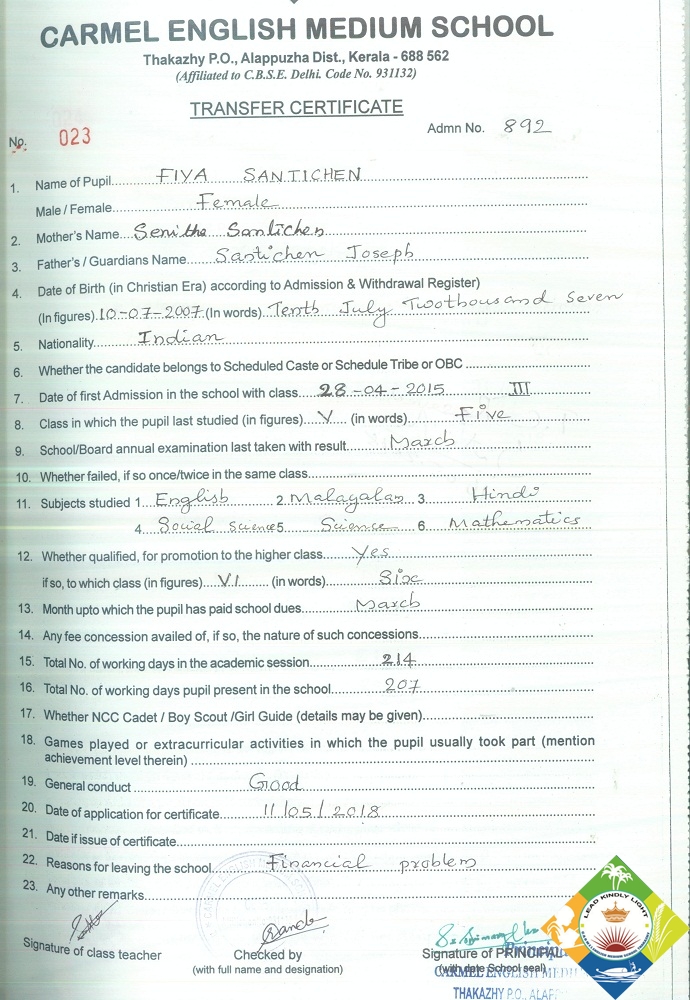 CARMEL ENGLISH MEDIUM SCHOOL
Thakazhy P.O., Alappuzha Dist., Kerala - 688 562
(Affiliated to C.B.S.E. Delhi. Code No. 931132)
TRANSFER CERTIFICATE
No. 023 Admn No. 892
1. Name of Pupil FIYA SANTICHEN
Male / Female Female
2. Mother's Name Senitha Santichen
3. Father's / Guardians Name Santichen Joseph
4. Date of Birth (in Christian Era) according to Admission & Withdrawal Register)
(In figures) 10-07-2007 (In words) Tenth July Twothousand Seven
5. Nationality Indian
6. Whether the candidate belongs to Scheduled Caste or Schedule Tribe or OBC
7. Date of first Admission in the school with class 28-04-2015 III
8. Class in which the pupil last studied (in figures) V (in words) Five
9. School/Board annual examination last taken with result March
10. Whether failed, if so once/twice in the same class
11. Subjects studied 1. English 2. Malayalam 3. Hindi
4. Social Science 5. Science 6. Mathematics
12. Whether qualified, for promotion to the higher class Yes
if so, to which class (in figures) VI (in words) Six
13. Month upto which the pupil has paid school dues March
14. Any fee concession availed of, if so, the nature of such concessions
15. Total No. of working days in the academic session 214
16. Total No. of working days pupil present in the school 207
17. Whether NCC Cadet / Boy Scout /Girl Guide (details may be given)
18. Games played or extracurricular activities in which the pupil usually took part (mention
achievement level therein)
19. General conduct Good
20. Date of application for certificate 11/05/2018
21. Date if issue of certificate
22. Reasons for leaving the school Financial problem
23. Any other remarks
Signature of class teacher
Checked by
(with full name and designation)
Signature of PRINCIPAL
(with date School seal)
CARMEL ENGLISH MEDI
THAKAZHY P.O., ALAP
LEAD KINDLY LIGHT